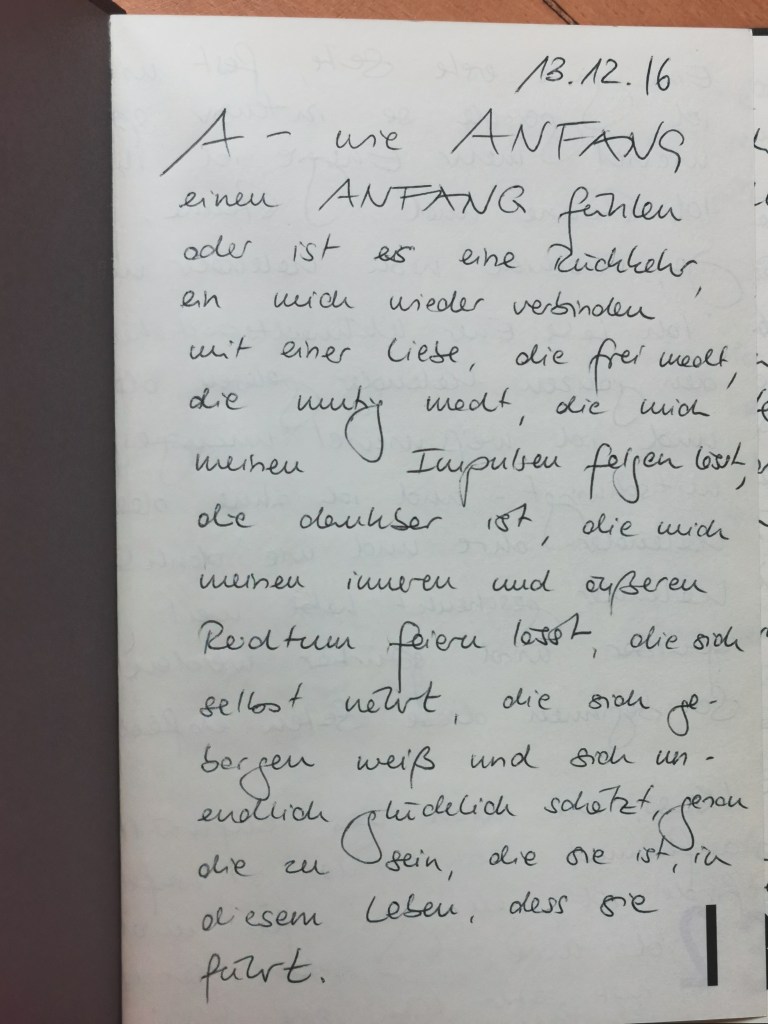 13.12.16
A - wie ANFANG
einen ANFANG fühlen
oder ist es eine Rückkehr,
ein mich wieder verbinden
mit einer Liebe, die frei macht,
die mutig macht, die mich
meinen Impulsen folgen lässt,
die dankbar ist, die mich
meinen inneren und äußeren
Reichtum feiern lässt, die sich
selbst nährt, die sich ge-
borgen weiß und sich un-
endlich glücklich schätzt, genau
die zu sein, die sie ist, in
diesem Leben, dass sie
führt.